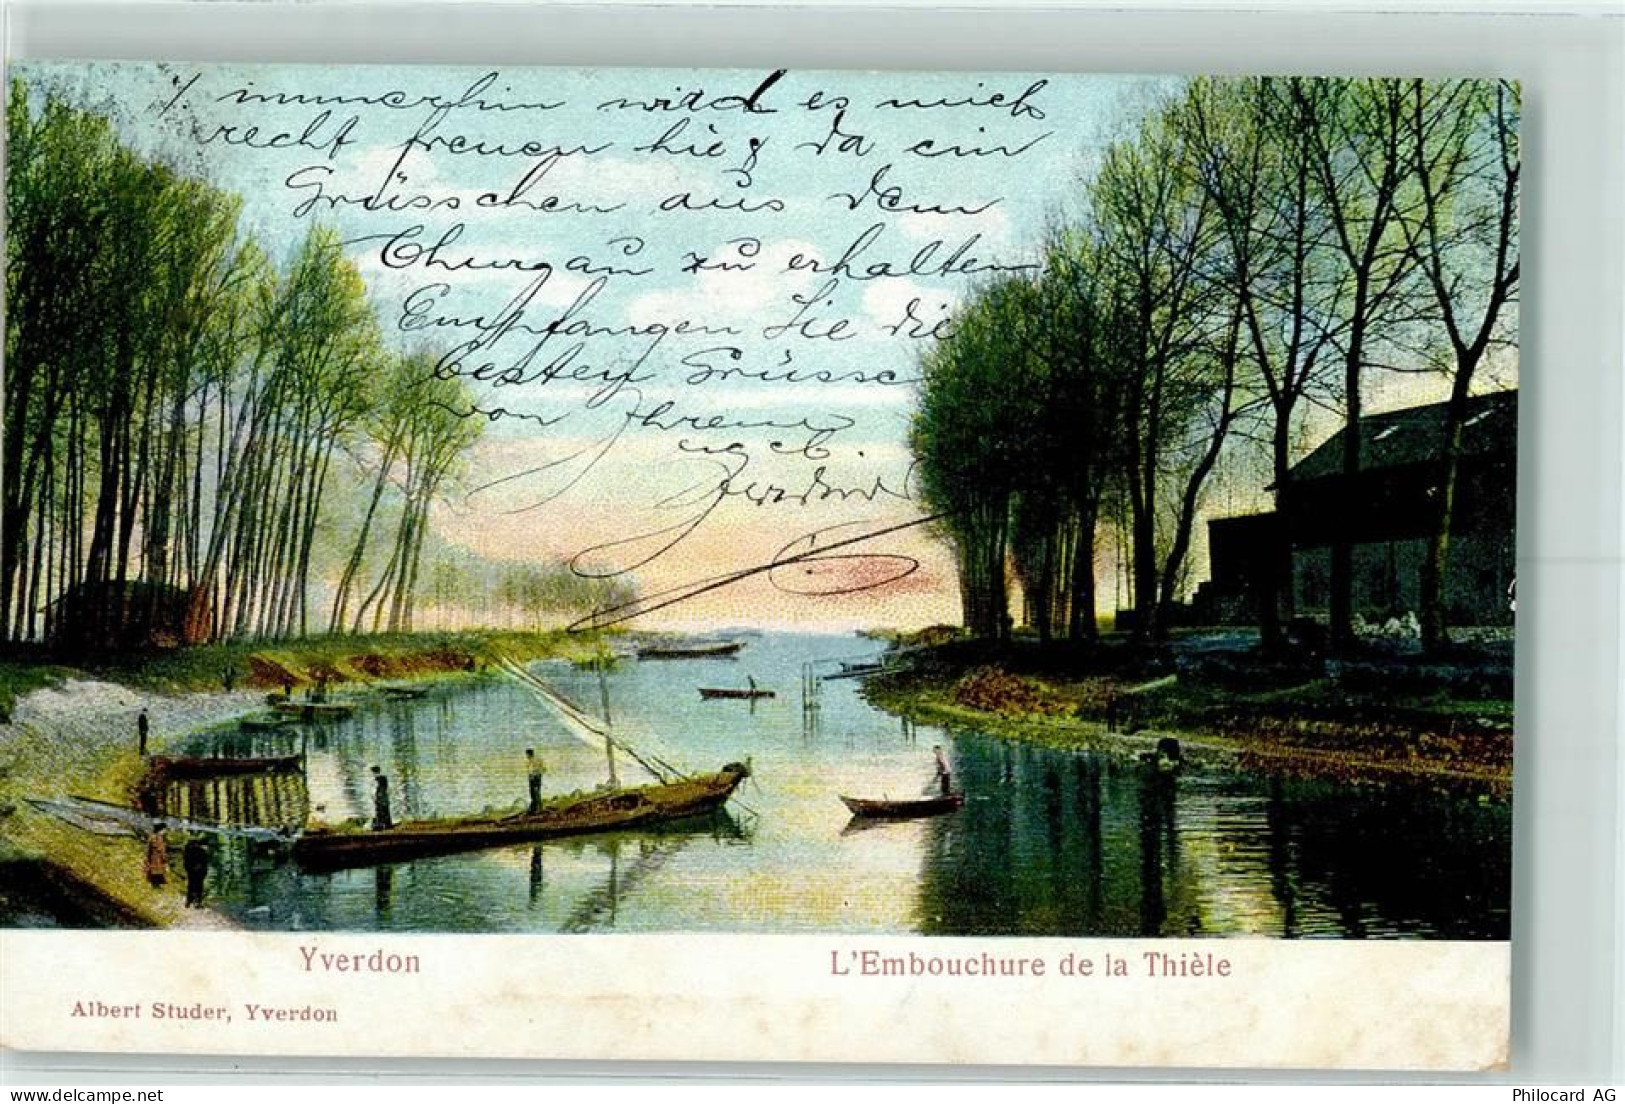 ./. immerhin wird es mich
recht freuen hie & da ein
Grüsschen aus dem
Thurgau zu erhalten
Empfangen Sie die
besten Grüsse
von Ihrem
ergeb.
Yverdon
L'Embouchure de la Thièle
Albert Studer, Yverdon
Philocard AG